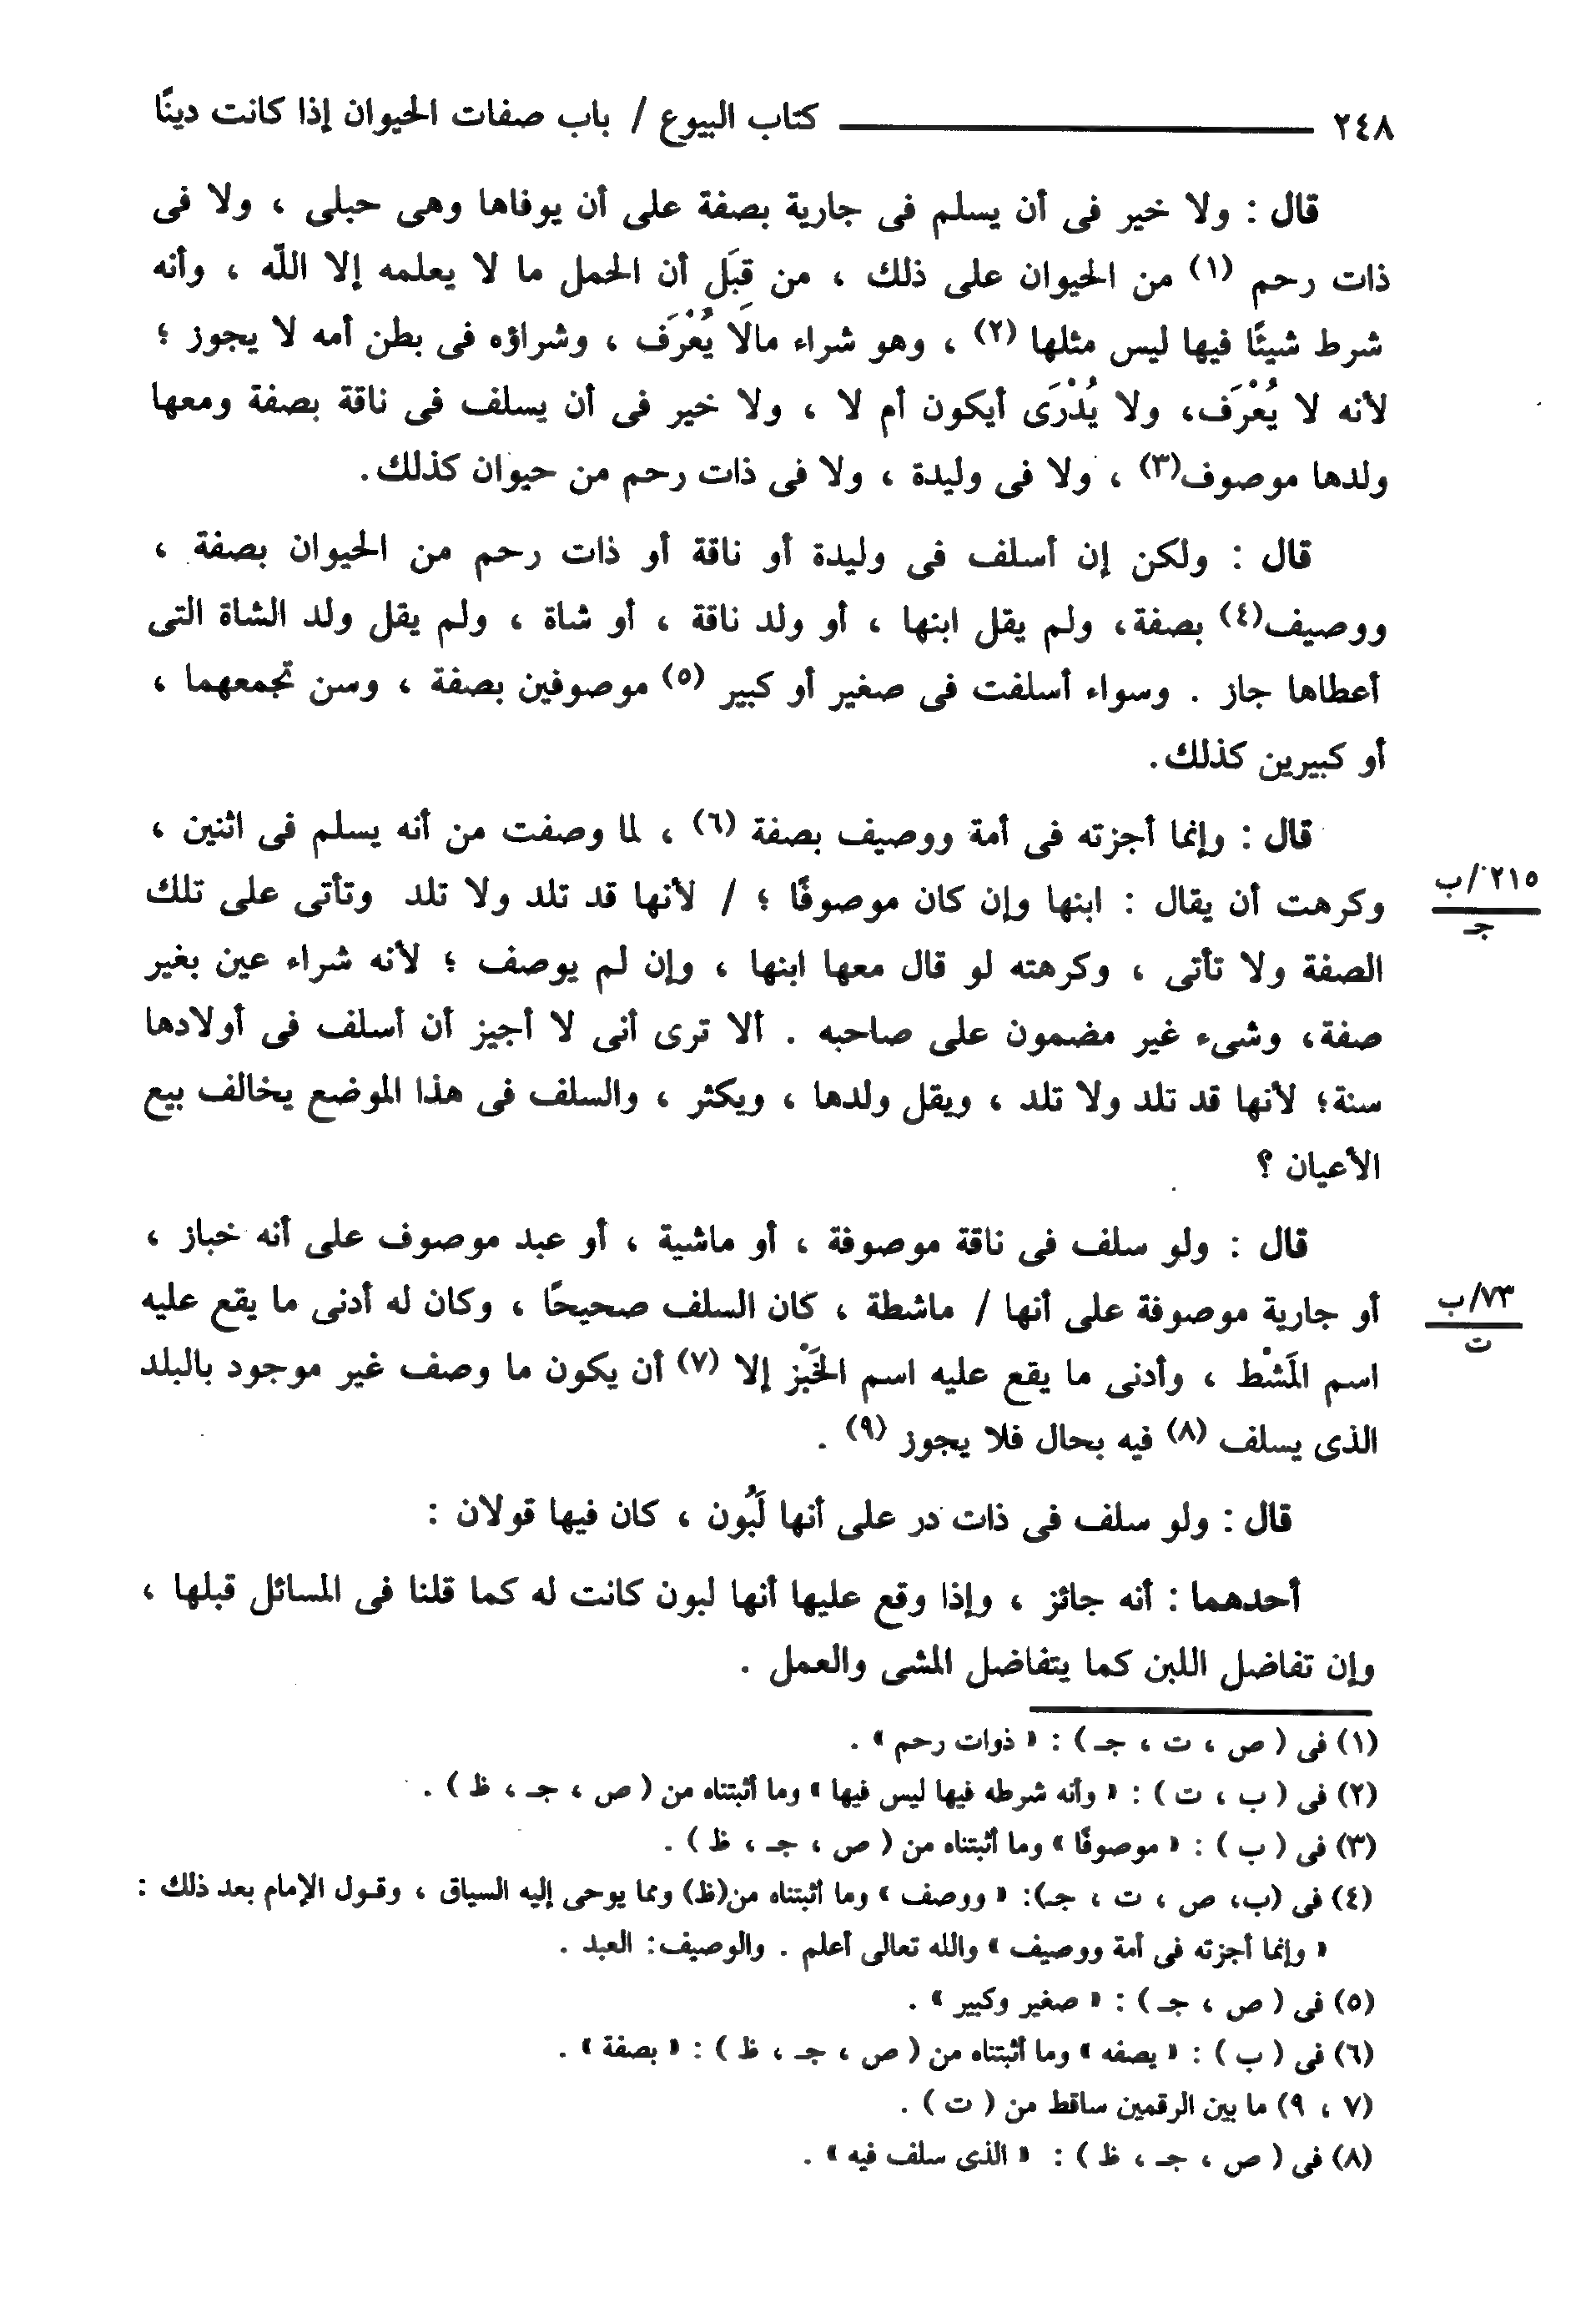 ٢٤٨ كتاب البيوع / باب صفات الحيوان إذا كانت دينًا
قال : ولا خير فى أن يسلم فى جارية بصفة على أن يوفاها وهى حبلى ، ولا فى
ذات رحم (١) من الحيوان على ذلك ، من قِبَلِ أن الحمل ما لا يعلمه إلا اللّه ، وأنه
شرط شيئًا فيها ليس مثلها (٢) ، وهو شراء مالا يُعْرَف ، وشراؤه فى بطن أمه لا يجوز ؛
لأنه لا يُعْرَف، ولا يُدْرَى أيكون أم لا ، ولا خير فى أن يسلف فى ناقة بصفة ومعها
ولدها موصوف(٣) ، ولا فى وليدة ، ولا فى ذات رحم من حيوان كذلك.
قال : ولكن إن أسلف فى وليدة أو ناقة أو ذات رحم من الحيوان بصفة ،
ووصيف(٤) بصفة، ولم يقل ابنها ، أو ولد ناقة ، أو شاة ، ولم يقل ولد الشاة التى
أعطاها جاز . وسواء أسلفت فى صغير أو كبير (٥) موصوفين بصفة ، وسن تجمعهما ،
أو كبيرين كذلك.
قال : وإنما أجزته فى أمة ووصيف بصفة (٦) ، لما وصفت من أنه يسلم فى اثنين ،
وكرهت أن يقال : ابنها وإن كان موصوفًا ؛ / لأنها قد تلد ولا تلد وتأتى على تلك
٢١٥/ب
جـ
الصفة ولا تأتى ، وكرهته لو قال معها ابنها ، وإن لم يوصف ؛ لأنه شراء عين بغير
صفة، وشىء غير مضمون على صاحبه . ألا ترى أنى لا أجيز أن أسلف فى أولادها
سنة؛ لأنها قد تلد ولا تلد ، ويقل ولدها ، ويكثر ، والسلف فى هذا الموضع يخالف بيع
الأعيان ؟
قال : ولو سلف فى ناقة موصوفة ، أو ماشية ، أو عبد موصوف على أنه خباز ،
أو جارية موصوفة على أنها / ماشطة ، كان السلف صحيحًا ، وكان له أدنى ما يقع عليه
٧٣/ب
ت
اسم المَشْط ، وأدنى ما يقع عليه اسم الخَبْز إلا (٧) أن يكون ما وصف غير موجود بالبلد
الذى يسلف (٨) فيه بحال فلا يجوز (٩) .
قال : ولو سلف فى ذات در على أنها لَبُون ، كان فيها قولان :
أحدهما : أنه جائز ، وإذا وقع عليها أنها لبون كانت له كما قلنا فى المسائل قبلها ،
وإن تفاضل اللبن كما يتفاضل المشى والعمل .
(١) فى ( ص ، ت ، جـ ) : « ذوات رحم » .
(٢) فى ( ب ، ت ) : « وأنه شرطه فيها ليس فيها » وما أثبتناه من ( ص ، جـ ، ظ ) .
(٣) فى ( ب ) : « موصوفًا » وما أثبتناه من ( ص ، جـ ، ظ ) .
(٤) فى (ب، ص ، ت ، جـ): « ووصف » وما أثبتناه من(ظ) ومما يوحى إليه السياق ، وقـول الإمام بعد ذلك :
« وإنما أجزته فى أمة ووصيف » والله تعالى أعلم . والوصيف: العبد .
(٥) فى ( ص ، جـ ) : « صغير وكبير » .
(٦) فى ( ب ) : « يصفه » وما أثبتناه من ( ص ، جـ ، ظ ) : « بصفة » .
(٧ ، ٩) ما بين الرقمين ساقط من ( ت ) .
(٨) فى ( ص ، جـ ، ظ ) : « الذى سلف فيه » .